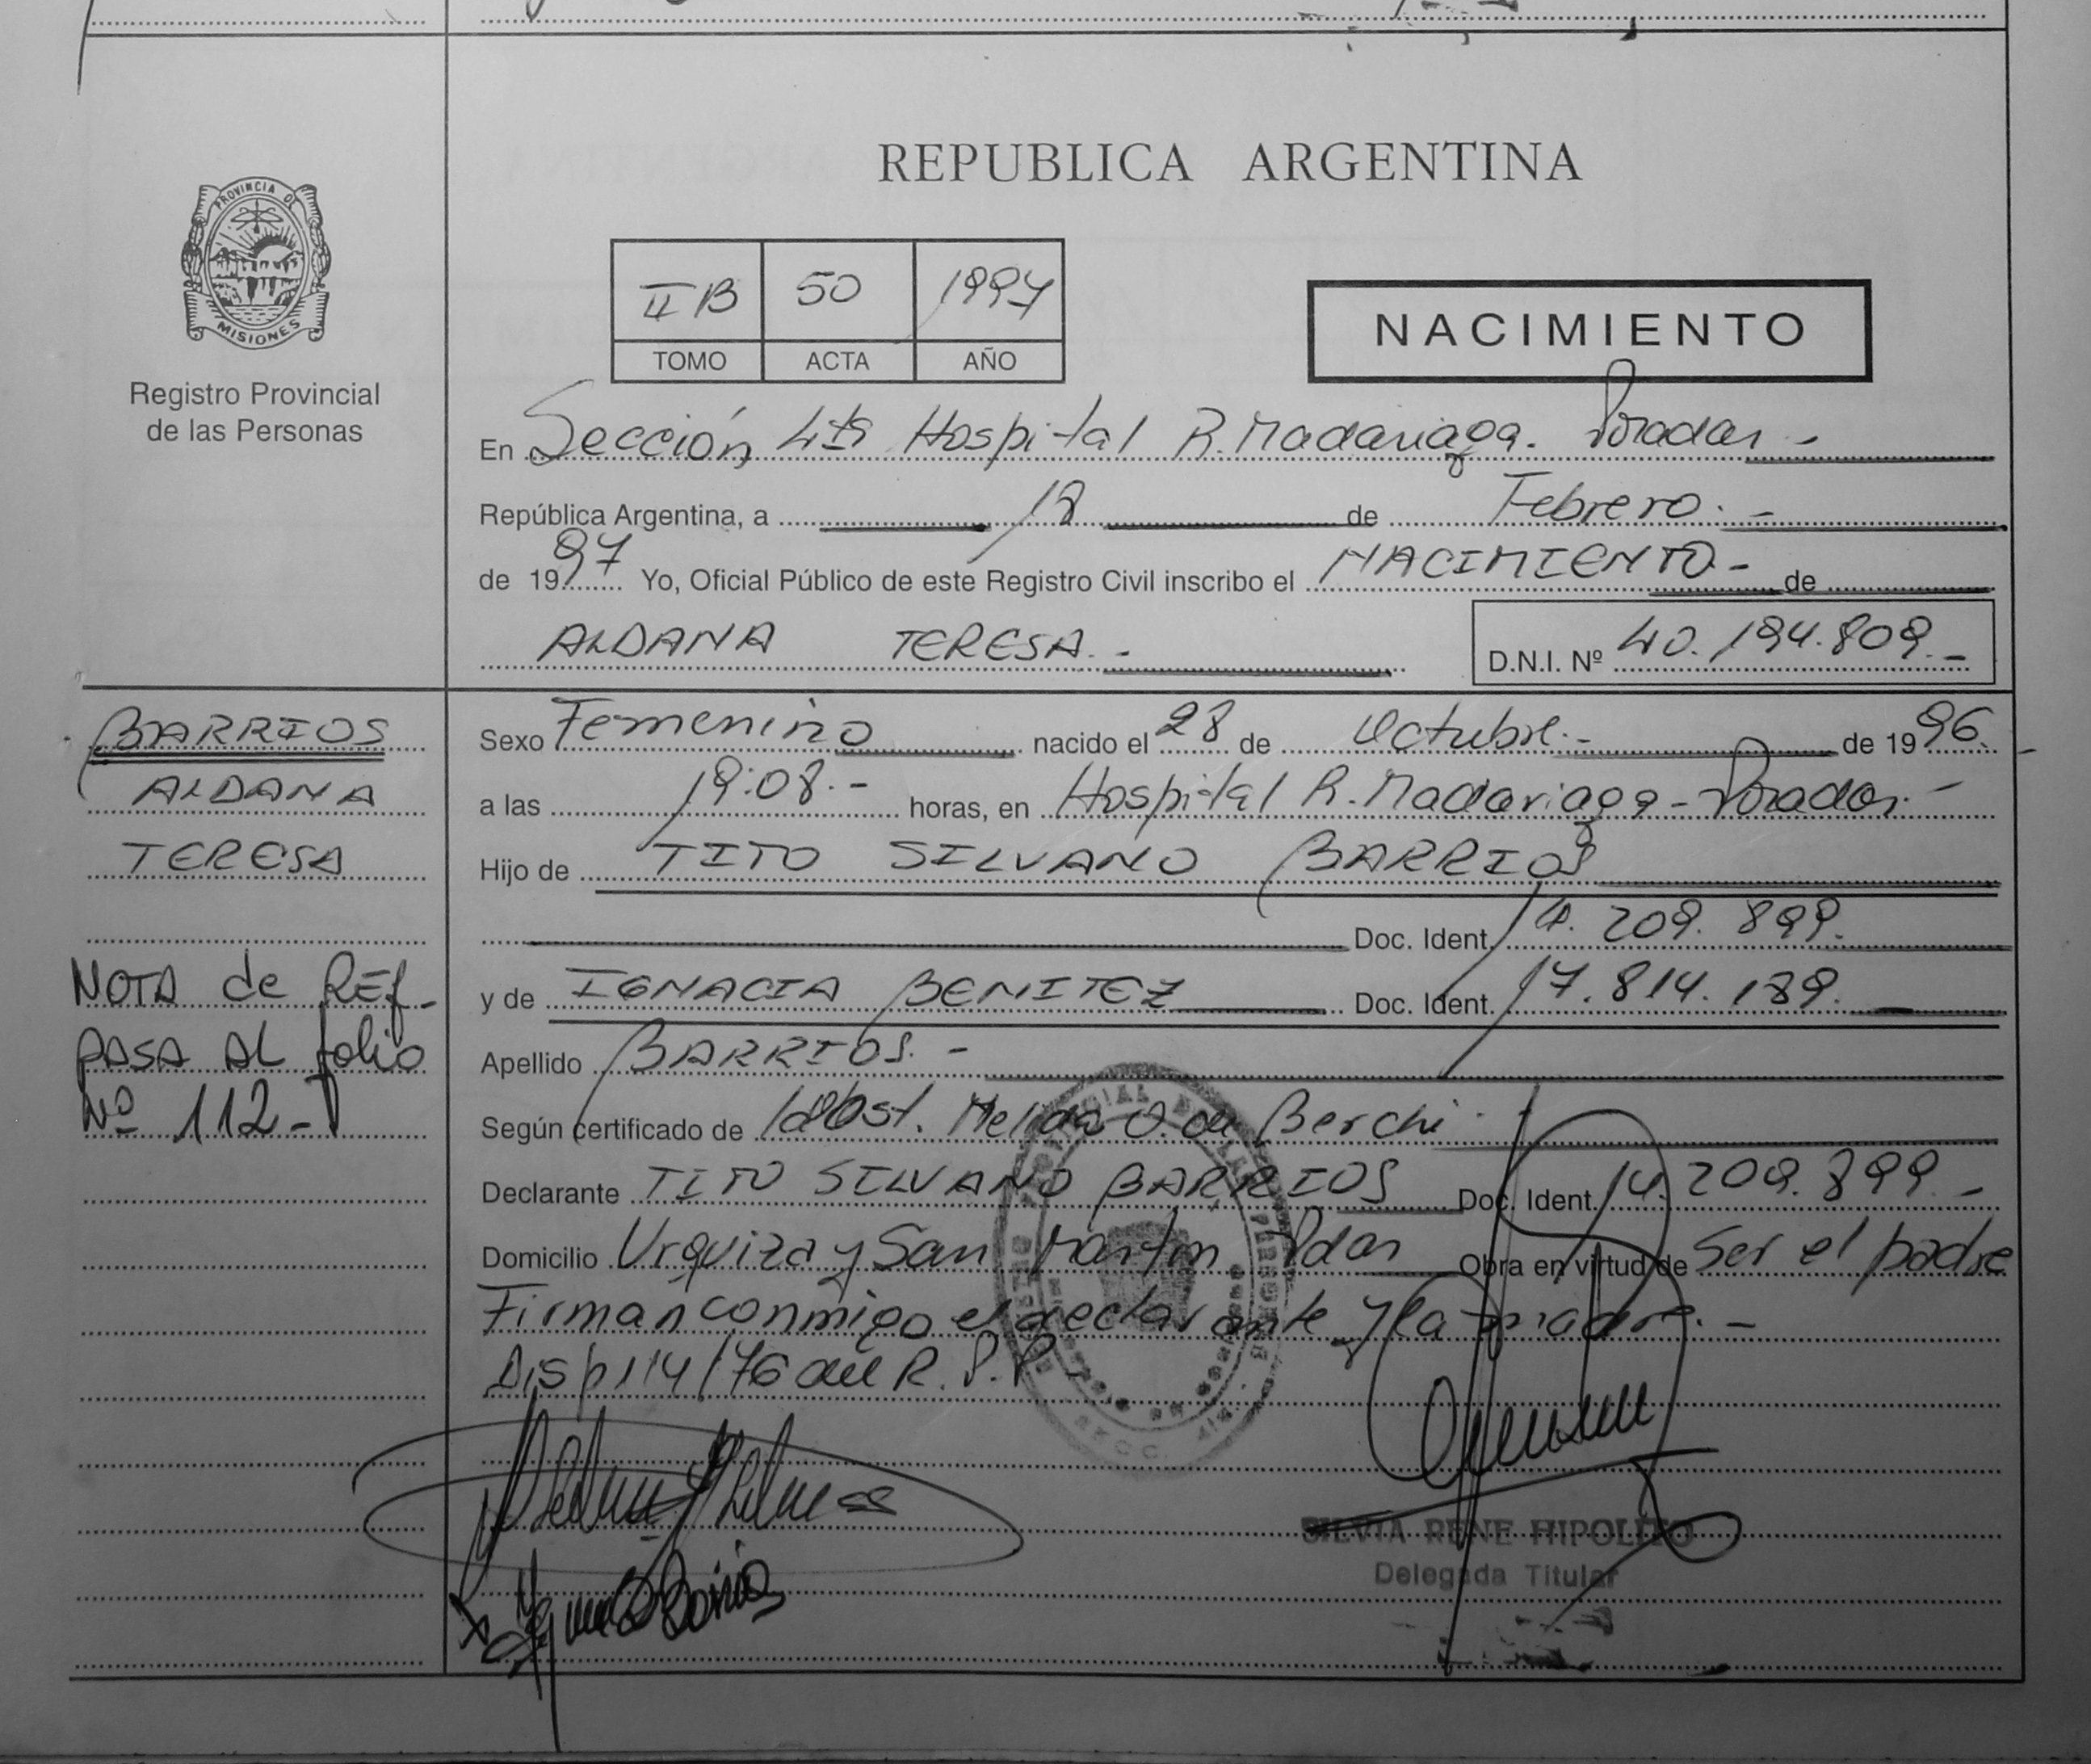 REPUBLICA ARGENTINA
PROVINCIA DE
MISIONES
Registro Provincial
de las Personas
II B 50 1997
TOMO ACTA AÑO
NACIMIENTO
En Sección 4ta Hospital R. Madariaga. Posadas -
República Argentina, a 18 de Febrero. -
de 1997 Yo, Oficial Público de este Registro Civil inscribo el NACIMIENTO - de
ALDANA TERESA. -
D.N.I. Nº 40.194.809. -
BARRIOS
ALDANA
TERESA
NOTA de REf-
PASA AL folio
Nº 112-
Sexo Femenino nacido el 28 de Octubre. - de 1996.
a las 19:08. - horas, en Hospital R. Madariaga - Posadas. -
Hijo de TITO SILVANO BARRIOS
Doc. Ident. 14. 209. 899.
y de IGNACIA BENITEZ Doc. Ident. 17. 814. 189.
Apellido BARRIOS. -
Según certificado de Obst. Melida O. de Berchi
Declarante TITO SILVANO BARRIOS Doc. Ident. 14. 209. 899. -
Domicilio Urquiza y San Martín Pdas Obra en virtud de Ser el padre
Firman conmigo el declarante y la madre. -
Disp 114/76 del R. P. P.
SILVIA RENE HIPOLITO
Delegada Titular